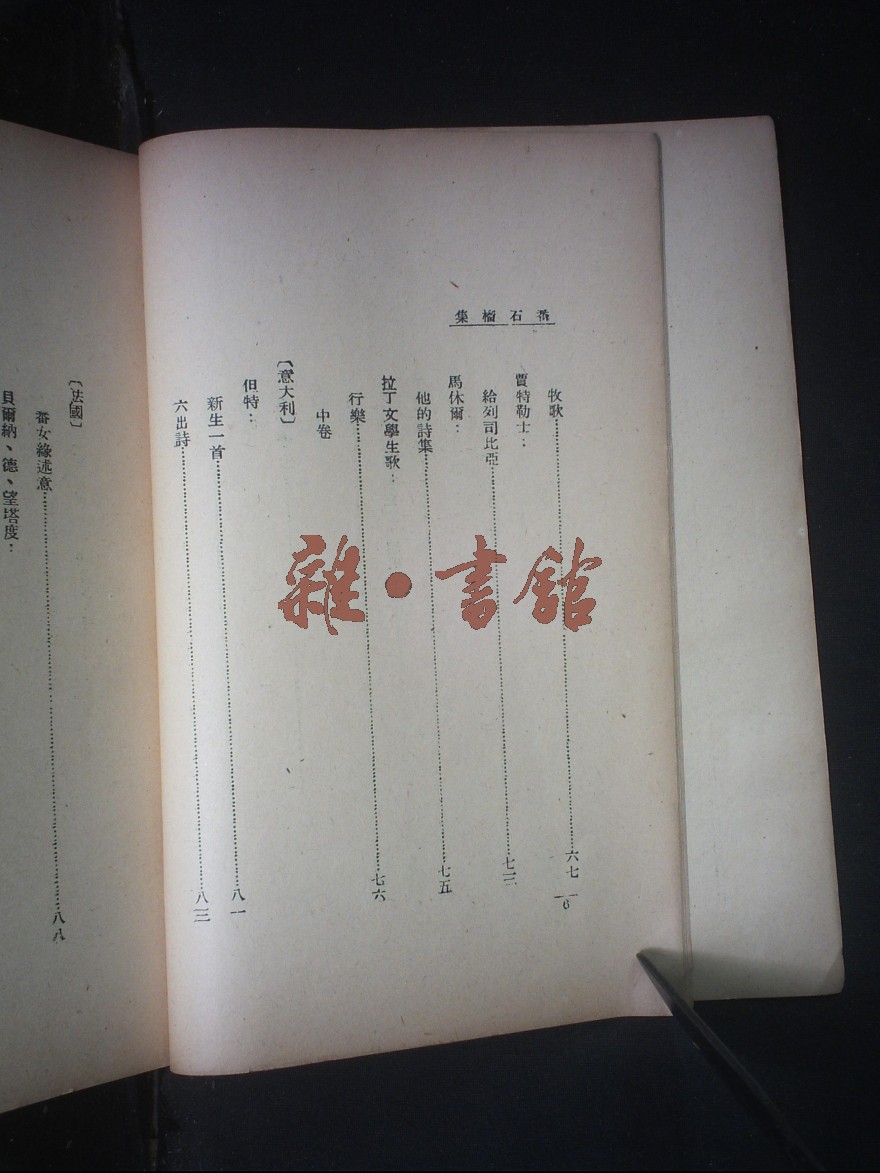 番石榴集
牧歌……六七
賈特勒士：
給列司比亞……七三
馬休爾：
他的詩集……七五
拉丁文學生歌：
行樂……七六
中卷
〔意大利〕
但特：
新生一首……八一
六出詩……八三
6
〔法國〕
番女緣述意……八八
貝爾納、德、望塔度：
雜・書館